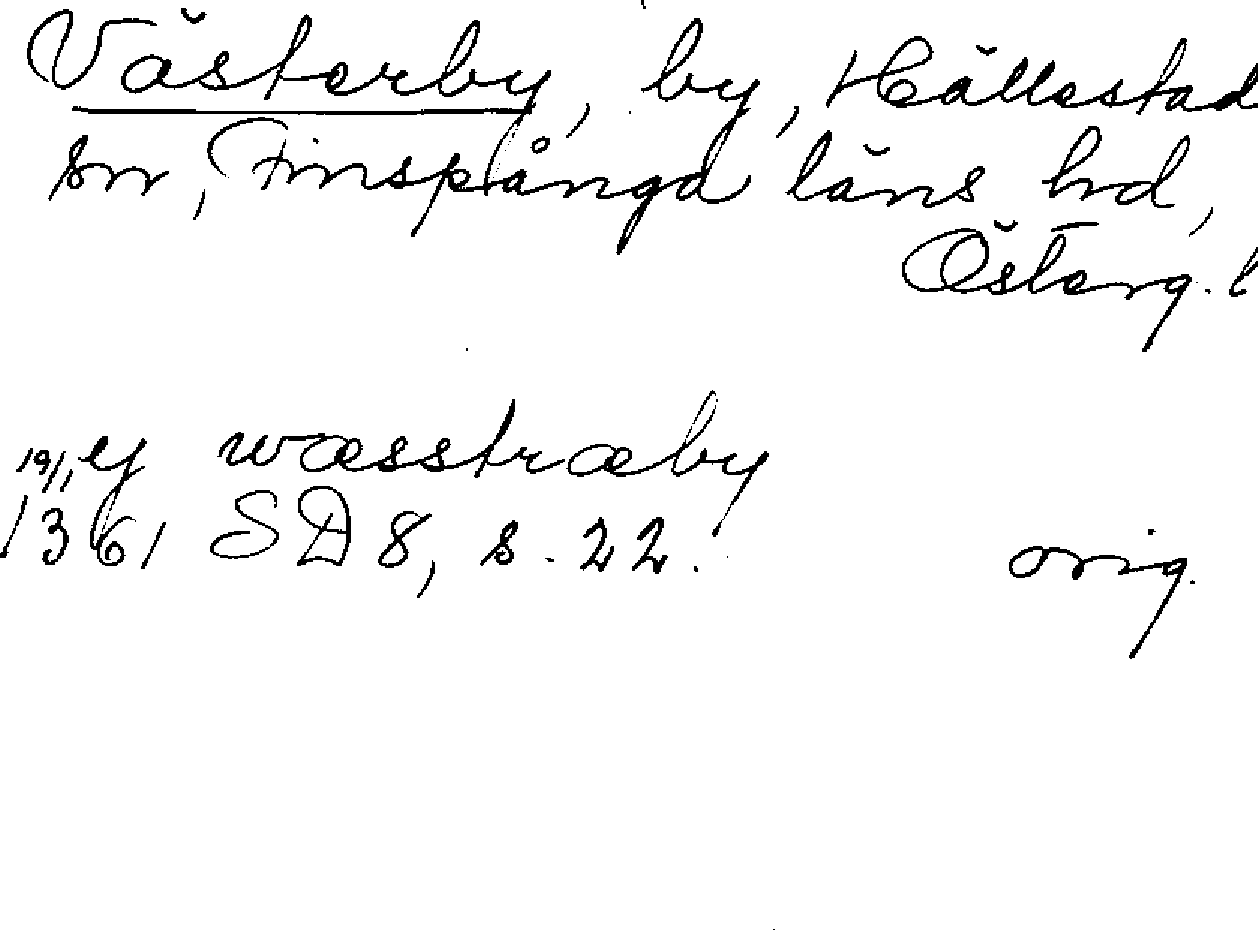 Västerby, by, Hällestad
sn, Finspånga läns hd,
Österg. l
19/1 ey wæsstræby
1361 SD 8, s. 22. orig.